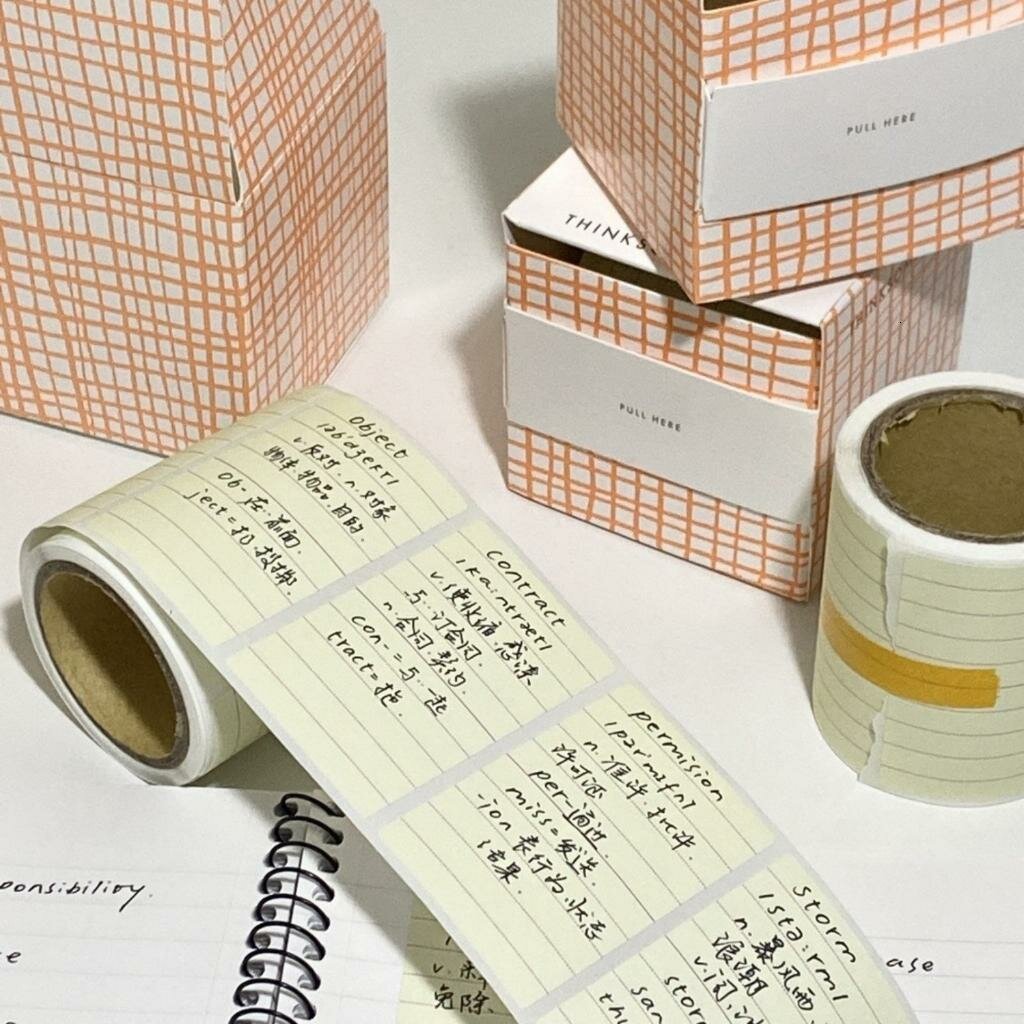 PULL HERE
THINKS
PULL HERE
object
v.反对. n.对象
物体.物品.目的.
ob-在.前面.
ject=扔.投掷.
contract
v.使收缩.感染
与..订合同.
n.合同.契约.
con-=与.一起
tract=拖.
permision
n.准许.批准.
许可证
per-通过.
miss=发送.
-ion 表行为.状态
结果.
storm
n.暴风雨.
v.
ponsibility.
e
v.
免除.
ase